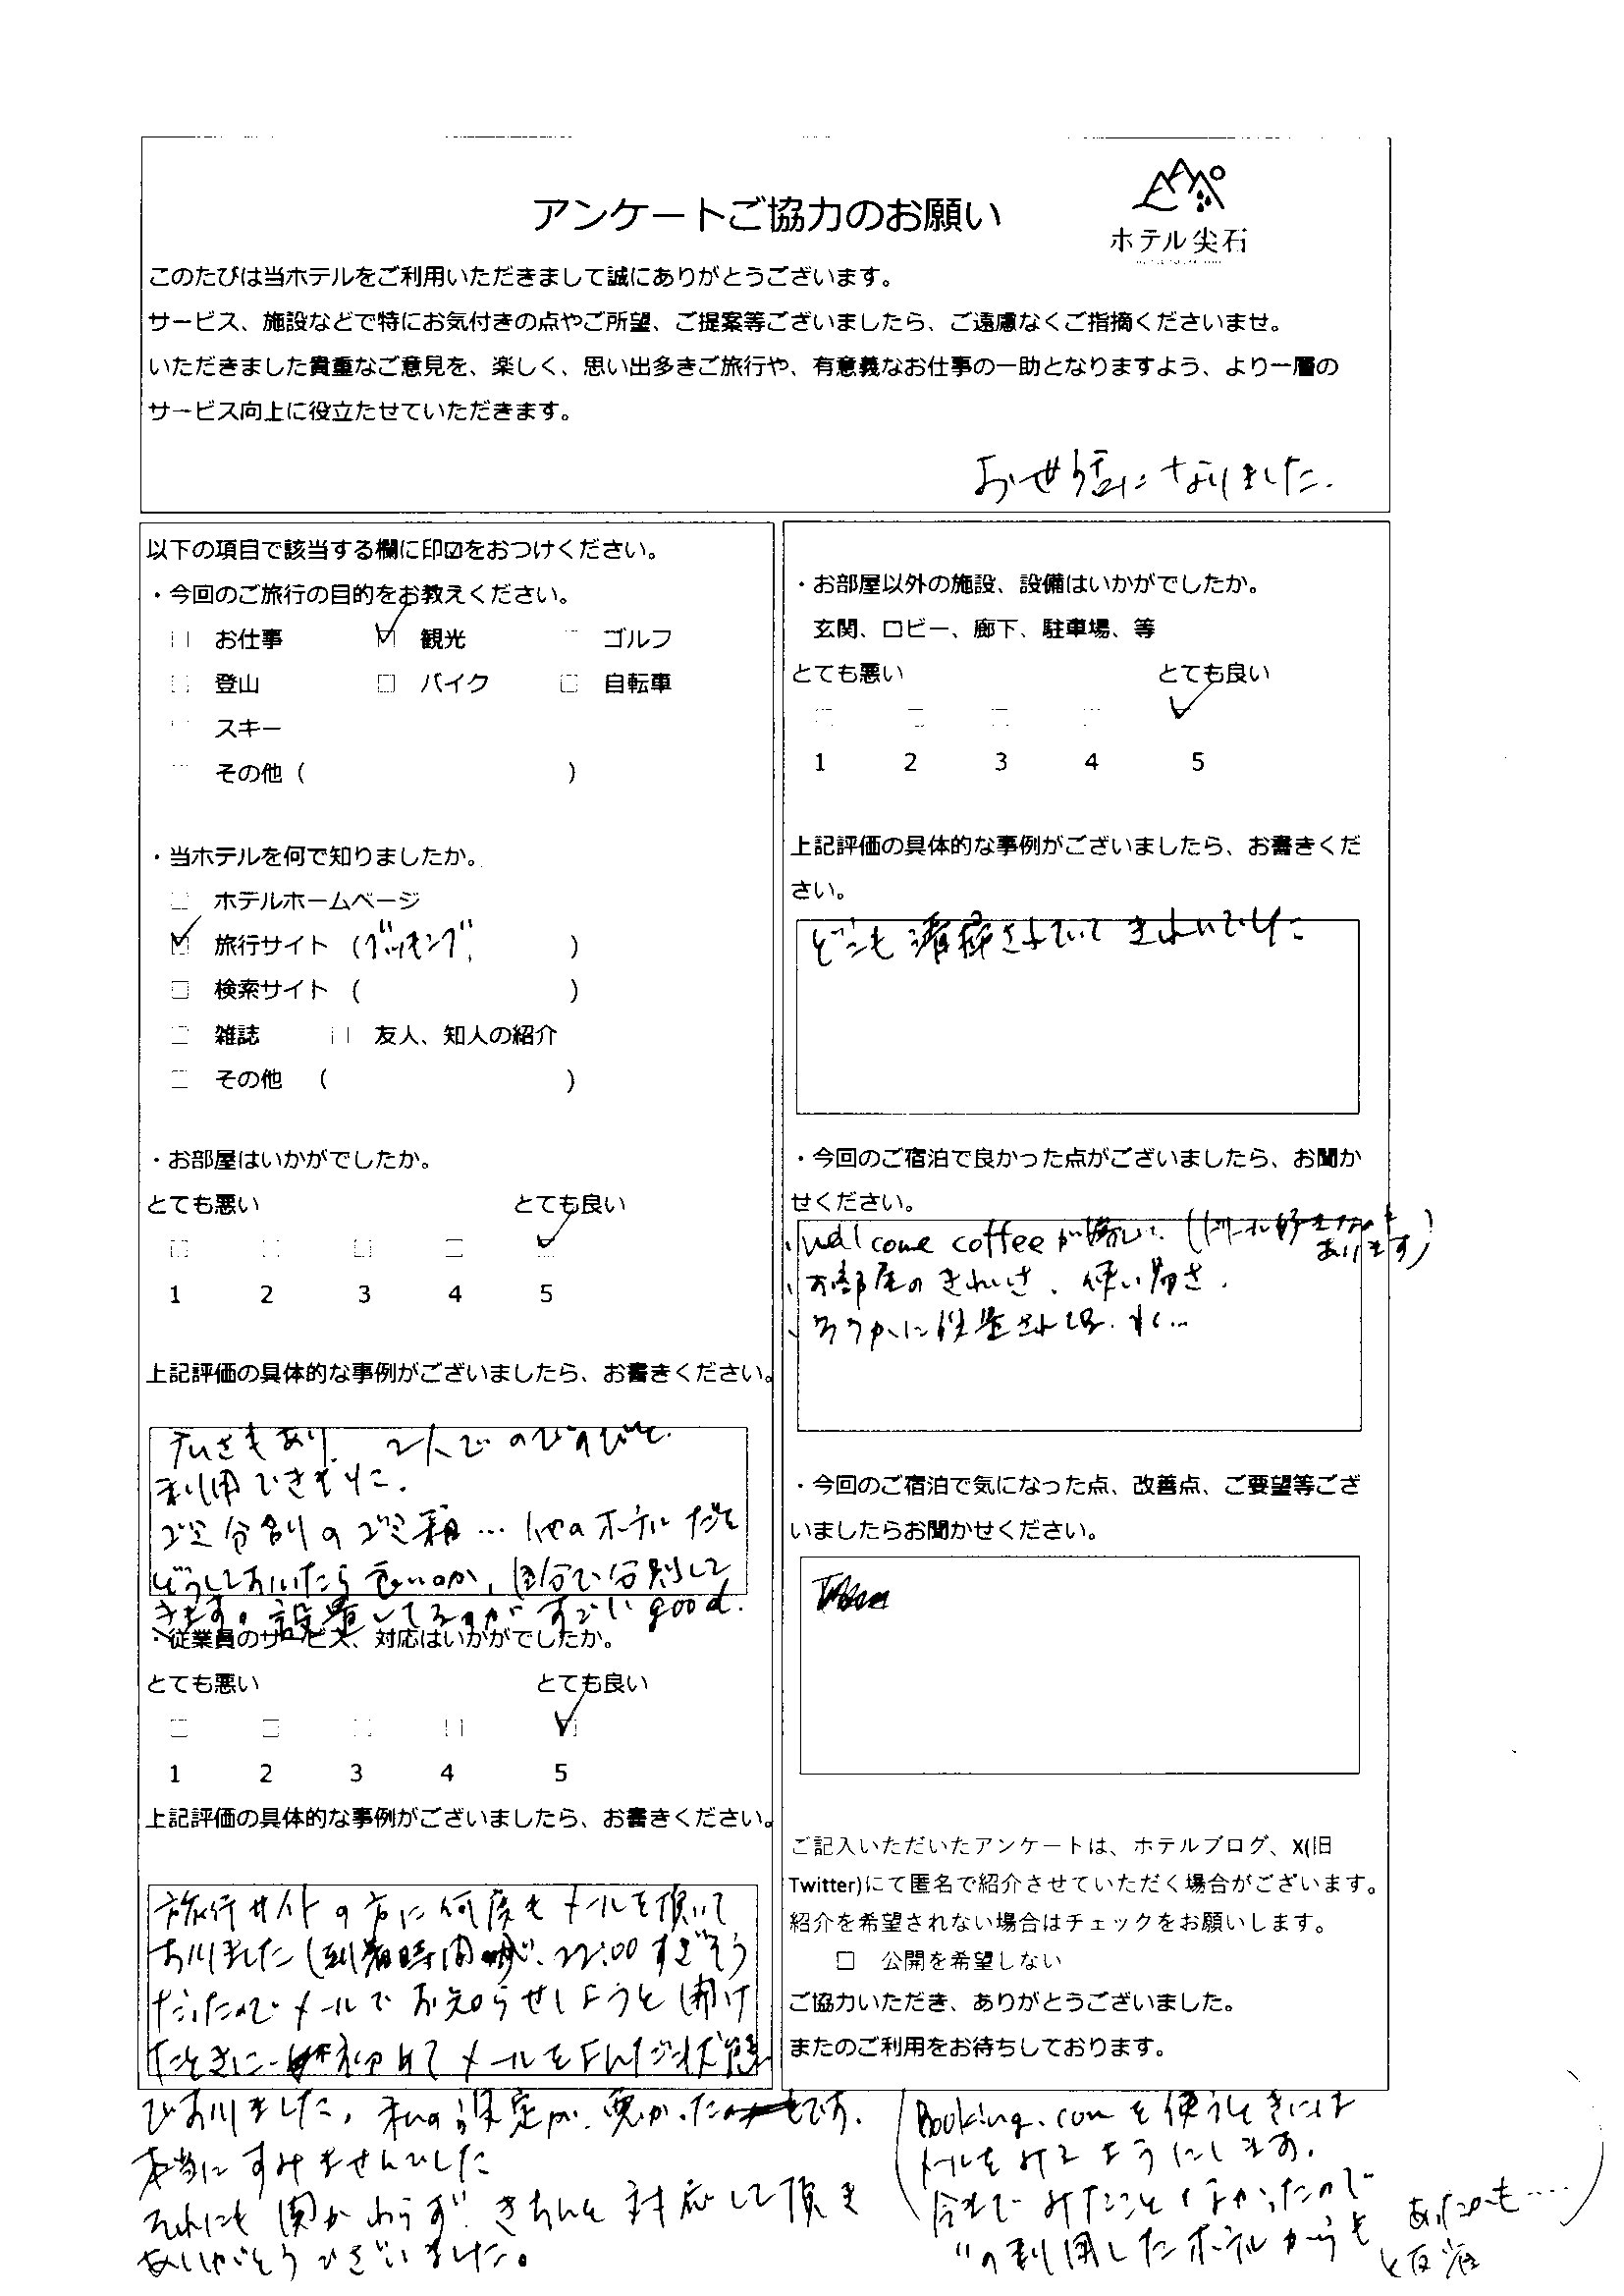 アンケートご協力のお願い
ホテル尖石
このたびは当ホテルをご利用いただきまして誠にありがとうございます。
サービス、施設などで特にお気付きの点やご所望、ご提案等ございましたら、ご遠慮なくご指摘くださいませ。
いただきました貴重なご意見を、楽しく、思い出多きご旅行や、有意義なお仕事の一助となりますよう、より一層の
サービス向上に役立たせていただきます。
お世話になりました.
以下の項目で該当する欄に印☑をおつけください。
・今回のご旅行の目的をお教えください。
□ お仕事 ☑ 観光 □ ゴルフ
□ 登山 □ バイク □ 自転車
□ スキー
□ その他 ( )
・当ホテルを何で知りましたか。
□ ホテルホームページ
☑ 旅行サイト (ブッキング )
□ 検索サイト ( )
□ 雑誌 □ 友人、知人の紹介
□ その他 ( )
・お部屋はいかがでしたか。
とても悪い とても良い
□ □ □ □ ☑
1 2 3 4 5
上記評価の具体的な事例がございましたら、お書きください。
広さもあり、2人でのびのびと
利用できました.
ゴミ分別のゴミ箱…他のホテルだと
どうしておいたら良いのか、自分で分別して
きます。設置してるのがすごい good.
・従業員のサービス、対応はいかがでしたか。
とても悪い とても良い
□ □ □ □ ☑
1 2 3 4 5
上記評価の具体的な事例がございましたら、お書きください。
旅行サイトの方に何度もメールを頂いて
おりました(到着時間が、22:00すぎそう
だったのでメールでお知らせしようと開け
たときに初めてメールをよんだ状態
でおりました, 私の設定が、悪かったです.
本当にすみませんでした
それにも関かわらず、きちんと対応して頂き
ありがとうございました。
・お部屋以外の施設、設備はいかがでしたか。
玄関、ロビー、廊下、駐車場、等
とても悪い とても良い
□ □ □ □ ☑
1 2 3 4 5
上記評価の具体的な事例がございましたら、お書きくだ
さい。
どこも清掃されていてきれいでした
・今回のご宿泊で良かった点がございましたら、お聞か
せください。
・welcome coffeeが嬉しい.
あります)
・お部屋のきれいさ、使い易さ.
・ろうかに設置されてる.
・今回のご宿泊で気になった点、改善点、ご要望等ござ
いましたらお聞かせください。
ご記入いただいたアンケートは、ホテルブログ、X(旧
Twitter)にて匿名で紹介させていただく場合がございます。
紹介を希望されない場合はチェックをお願いします。
□ 公開を希望しない
ご協力いただき、ありがとうございました。
またのご利用をお待ちしております。
(Booking.comを使うときには
メールをみるようにします.
今までみたことなかったので
〃の利用したホテルからも
あったかも……)
と反省